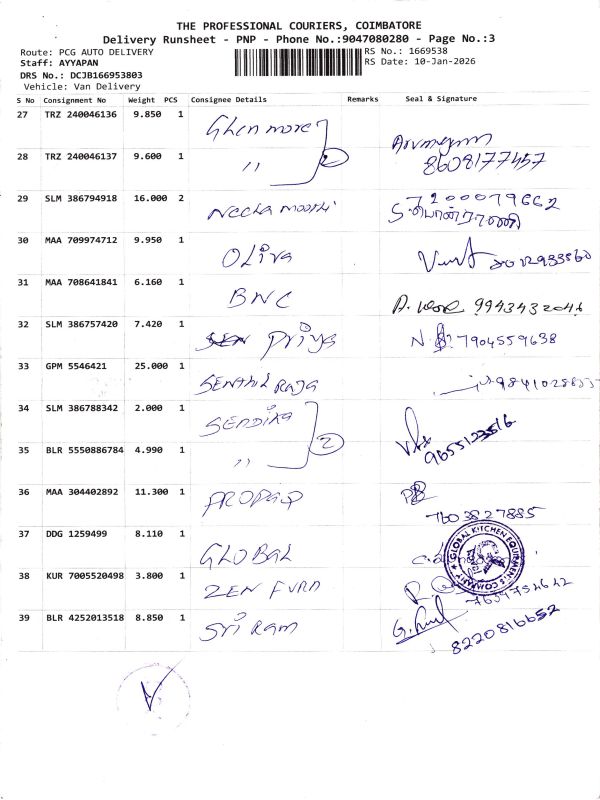 THE PROFESSIONAL COURIERS, COIMBATORE
Delivery Runsheet - PNP - Phone No.:9047080280 - Page No.:3
Route: PCG AUTO DELIVERY
RS No.: 1669538
Staff: AYYAPAN
RS Date: 10-Jan-2026
DRS No.: DCJB166953803
Vehicle: Van Delivery
S No Consignment No Weight PCS Consignee Details Remarks Seal & Signature
27 TRZ 240046136 9.850 1 Glenmore
28 TRZ 240046137 9.600 1 " 2 8608177457
29 SLM 386794918 16.000 2 Neelamoorthi 7200079662
30 MAA 709974712 9.950 1 Oliva
31 MAA 708641841 6.160 1 BNC 9943432046
32 SLM 386757420 7.420 1 Priya 7904559638
33 GPM 5546421 25.000 1 SENTHIL RAJA
34 SLM 386788342 2.000 1 SENDIRA
35 BLR 5550886784 4.990 1 " 2
36 MAA 304402892 11.300 1 7603827885
37 DDG 1259499 8.110 1 GLOBAL
GLOBAL KITCHEN EQUIPMENTS COMPANY
38 KUR 7005520498 3.800 1 ZEN FURN
39 BLR 4252013518 8.850 1 Sri Ram 8220816652